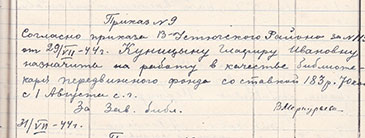 Приказ № 9
Согласно приказа В-Устюгского Районо за №
от 29/VII-44г. Куницыну Глафиру Ивановну
назначить на работу в качестве библиоте-
каря передвижного фонда со ставкой 183р. 70коп
с 1 Августа с.г.
За Зав. библ.
31/VII-44г.